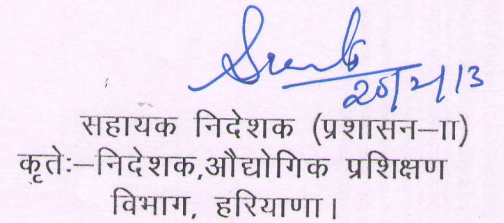 20/2/13
सहायक निदेशक (प्रशासन–II)
कृतेः–निदेशक,औद्योगिक प्रशिक्षण
विभाग, हरियाणा।